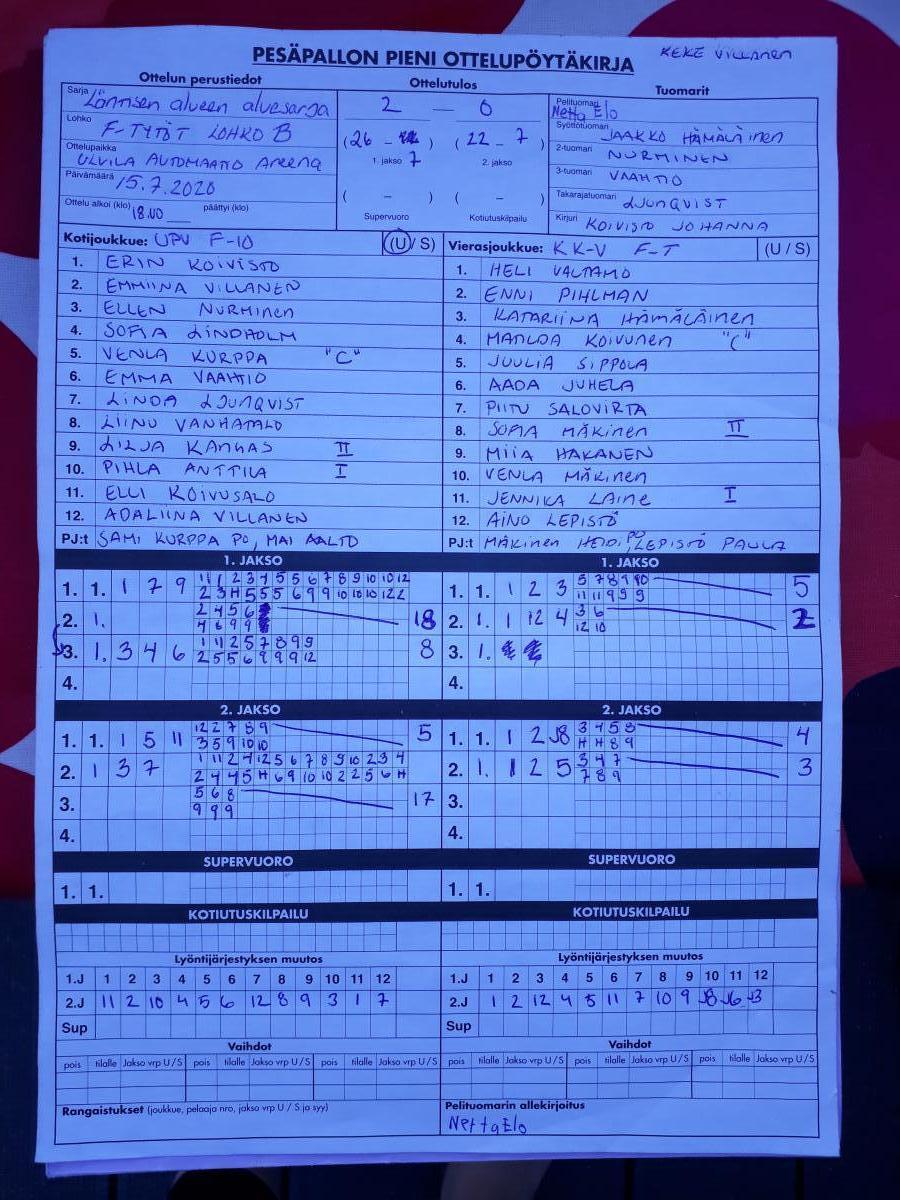 PESÄPALLON PIENI OTTELUPÖYTÄKIRJA KEKE VILLANEN
Ottelun perustiedot Ottelutulos Tuomarit
Sarja Läntisen alueen aluesarja
Lohko F-TYTÖT LOHKO B
Ottelupaikka ULVILA AUTOMAATIO Areena
Päivämäärä 15.7.2020
Ottelu alkoi (klo) 18.00 päättyi (klo)
2 — 0
(26 - 7) (22 - 7)
1. jakso 2. jakso
( - ) ( - )
Supervuoro Kotiutuskilpailu
Pelituomari Netta Elo
Syöttötuomari JAAKKO HÄMÄLÄINEN
2-tuomari NURMINEN
3-tuomari VAAHTIO
Takarajatuomari LJUNQVIST
Kirjuri KOIVISTO JOHANNA
Kotijoukkue: UPV F-10 (U / S)
1. ERIN KOIVISTO
2. EMMIINA VILLANEN
3. ELLEN NURMINEN
4. SOFIA LINDHOLM
5. VENLA KURPPA "C"
6. EMMA VAAHTIO
7. LINDA LJUNQVIST
8. LIINU VANHATALO
9. LILJA KANGAS II
10. PIHLA ANTTILA I
11. ELLI KOIVUSALO
12. ADALIINA VILLANEN
PJ:t SAMI KURPPA PO, MAI AALTO
Vierasjoukkue: KK-V F-T (U / S)
1. HELI VALTAMO
2. ENNI PIHLMAN
3. KATARIINA HÄMÄLÄINEN
4. MATILDA KOIVUNEN "C"
5. JUULIA SIPPOLA
6. AADA JUHELA
7. PIITU SALOVIRTA
8. SOFIA MÄKINEN II
9. MIIA HAKANEN
10. VENLA MÄKINEN
11. JENNIKA LAINE I
12. AINO LEPISTÖ
PJ:t MÄKINEN HEIDI PO, LEPISTÖ PAULA
1. JAKSO
1. 1. 1 7 9
2. 1. 18
2 4 5 6
4 6 9 9
3. 1. 3 4 6 8
1 11 2 5 7 8 9 9
2 5 5 6 9 9 9 12
4.
1. JAKSO
1. 1. 1 2 3 5
5 7 8 9 10
11 11 9 9 9
2. 1. 1 12 4 2
3 6
12 10
3. 1.
4.
2. JAKSO
1. 1. 1 5 11 5
12 2 7 8 9
3 5 9 10 10
2. 1 3 7
1 11 2 4 12 5 6 7 8 9 10 2 3 4
2 4 4 5 H 6 9 10 10 2 2 5 6 H
3. 17
5 6 8
9 9 9
4.
2. JAKSO
1. 1. 1 2 J8 4
3 4 5 8
H H 8 9
2. 1. 1 2 5 3
3 4 7
7 8 9
3.
4.
SUPERVUORO SUPERVUORO
1. 1. 1. 1.
KOTIUTUSKILPAILU KOTIUTUSKILPAILU
Lyöntijärjestyksen muutos Lyöntijärjestyksen muutos
1.J 1 2 3 4 5 6 7 8 9 10 11 12 1.J 1 2 3 4 5 6 7 8 9 10 11 12
2.J 11 2 10 4 5 6 12 8 9 3 1 7 2.J 1 2 12 4 5 11 7 10 9 J8 J6 J3
Sup Sup
Vaihdot Vaihdot
pois tilalle Jakso vrp U / S pois tilalle Jakso vrp U / S pois tilalle Jakso vrp U / S pois tilalle Jakso vrp U / S pois tilalle Jakso vrp U / S pois tilalle Jakso vrp U / S
Rangaistukset (joukkue, pelaaja nro, jakso vrp U / S ja syy) Pelituomarin allekirjoitus
Netta Elo